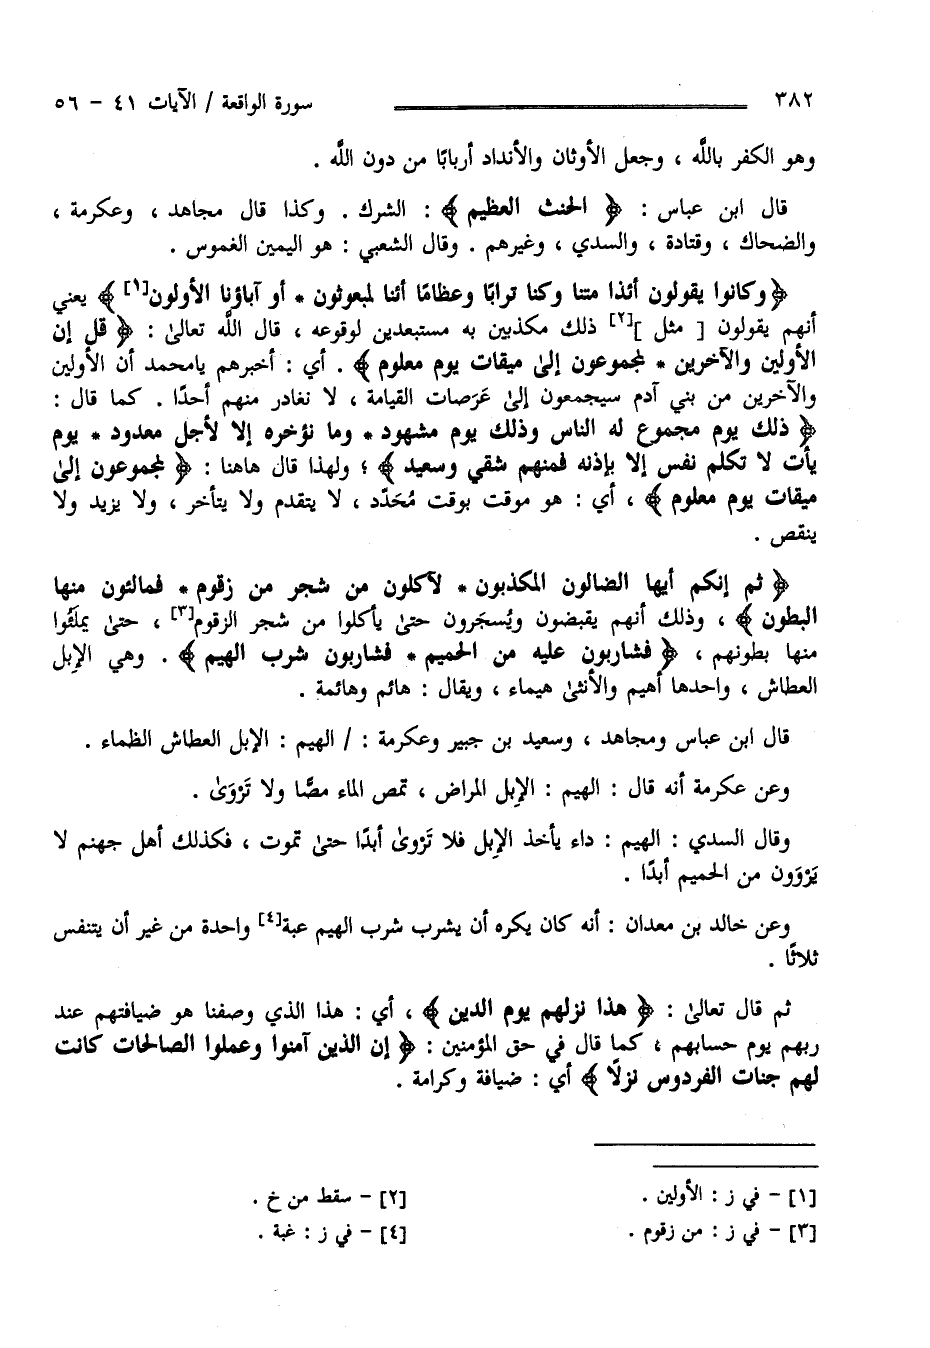 ٣٨٢ سورة الواقعة / الآيات ٤١ - ٥٦
وهو الكفر باللَّه ، وجعل الأوثان والأنداد أربابًا من دون اللَّه .
قال ابن عباس : ﴿ الحنث العظيم ﴾ : الشرك . وكذا قال مجاهد ، وعكرمة ،
والضحاك ، وقتادة ، والسدي ، وغيرهم . وقال الشعبي : هو اليمين الغموس .
﴿وكانوا يقولون أئذا متنا وكنا ترابًا وعظامًا أئنا لمبعوثون * أو آباؤنا الأولون[١] ﴾ يعني
أنهم يقولون [ مثل ][٢] ذلك مكذبين به مستبعدين لوقوعه ، قال اللَّه تعالىٰ : ﴿ قل إن
الأولين والآخرين * لمجموعون إلىٰ ميقات يوم معلوم ﴾ . أي : أخبرهم يامحمد أن الأولين
والآخرين من بني آدم سيجمعون إلىٰ عَرَصات القيامة ، لا نغادر منهم أحدًا . كما قال :
﴿ ذلك يوم مجموع له الناس وذلك يوم مشهود * وما نؤخره إلا لأجل معدود * يوم
يأت لا تكلم نفس إلا بإذنه فمنهم شقي وسعيد ﴾ ؛ ولهذا قال هاهنا : ﴿ لمجموعون إلىٰ
ميقات يوم معلوم ﴾ ، أي : هو موقت بوقت مُحَدّد ، لا يتقدم ولا يتأخر ، ولا يزيد ولا
ينقص .
﴿ ثم إنكم أيها الضالون المكذبون * لآكلون من شجر من زقوم * فمالئون منها
البطون ﴾ ، وذلك أنهم يقبضون ويُسجَرون حتىٰ يأكلوا من شجر الزقوم[٣] ، حتىٰ يملَئُوا
منها بطونهم ، ﴿ فشاربون عليه من الحميم * فشاربون شرب الهيم ﴾ . وهي الإبل
العطاش ، واحدها أهيم والأنثىٰ هيماء ، ويقال : هائم وهائمة .
قال ابن عباس ومجاهد ، وسعيد بن جبير وعكرمة : / الهيم : الإبل العطاش الظماء .
وعن عكرمة أنه قال : الهيم : الإبل المراض ، تمص الماء مصًّا ولا تَرْوَىٰ .
وقال السدي : الهيم : داء يأخذ الإبل فلا تَرْوىٰ أبدًا حتىٰ تموت ، فكذلك أهل جهنم لا
يَرْوَون من الحميم أبدًا .
وعن خالد بن معدان : أنه كان يكره أن يشرب شرب الهيم عبة[٤] واحدة من غير أن يتنفس
ثلاثًا .
ثم قال تعالىٰ : ﴿ هذا نزلهم يوم الدين ﴾ ، أي : هذا الذي وصفنا هو ضيافتهم عند
ربهم يوم حسابهم ، كما قال في حق المؤمنين : ﴿ إن الذين آمنوا وعملوا الصالحات كانت
لهم جنات الفردوس نزلًا ﴾ أي : ضيافة وكرامة .
[١] - في ز : الأولين . [٢] - سقط من خ .
[٣] - في ز : من زقوم . [٤] - في ز : غبة .